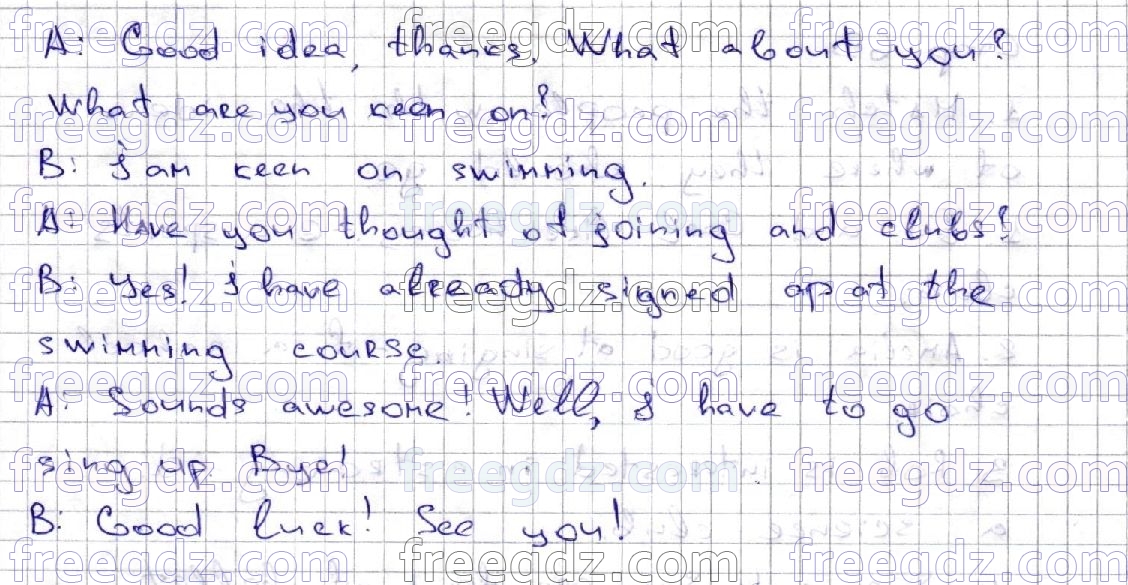 A: Good idea, thanks. What about you?
What are you keen on?
B: I am keen on swimming.
A: Have you thought of joining and clubs?
B: Yes! I have already signed ap at the
swimming course.
A: Sounds awesome! Well, I have to go
sing up Bye!
B: Good luck! See you!